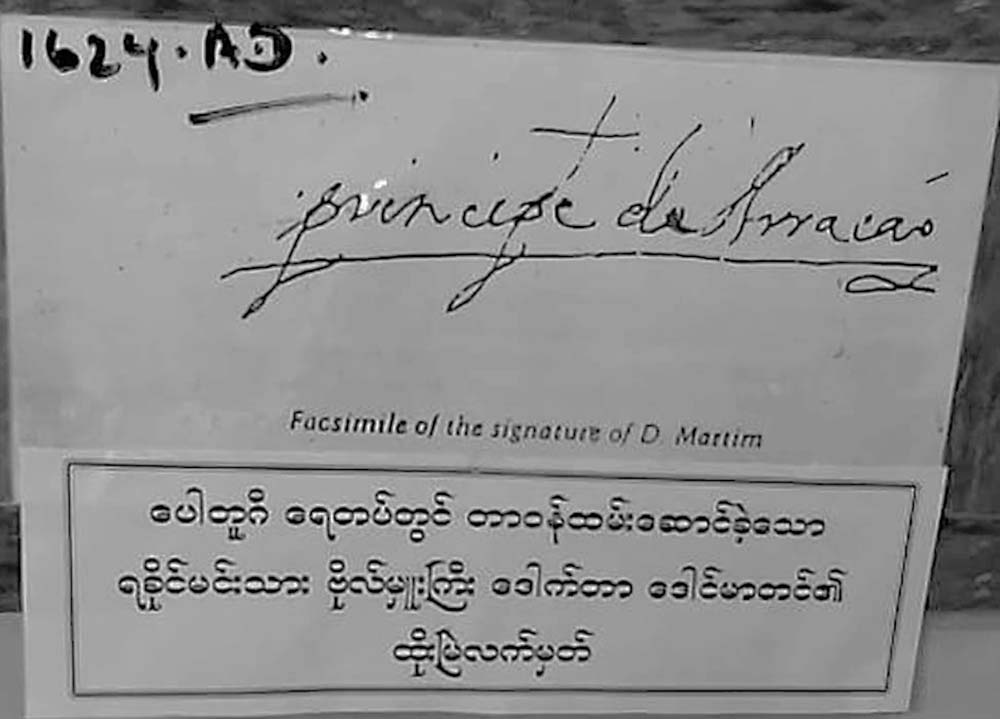 1624. A.D.
principe de Arracaó
Facsimile of the signature of D. Martim
ပေါ်တူဂီ ရေတပ်တွင် တာဝန်ထမ်းဆောင်ခဲ့သော
ရခိုင်မင်းသား ဗိုလ်မှူးကြီး ဒေါက်တာ ဒေါင်မာတင်၏
ထိုးမြဲလက်မှတ်